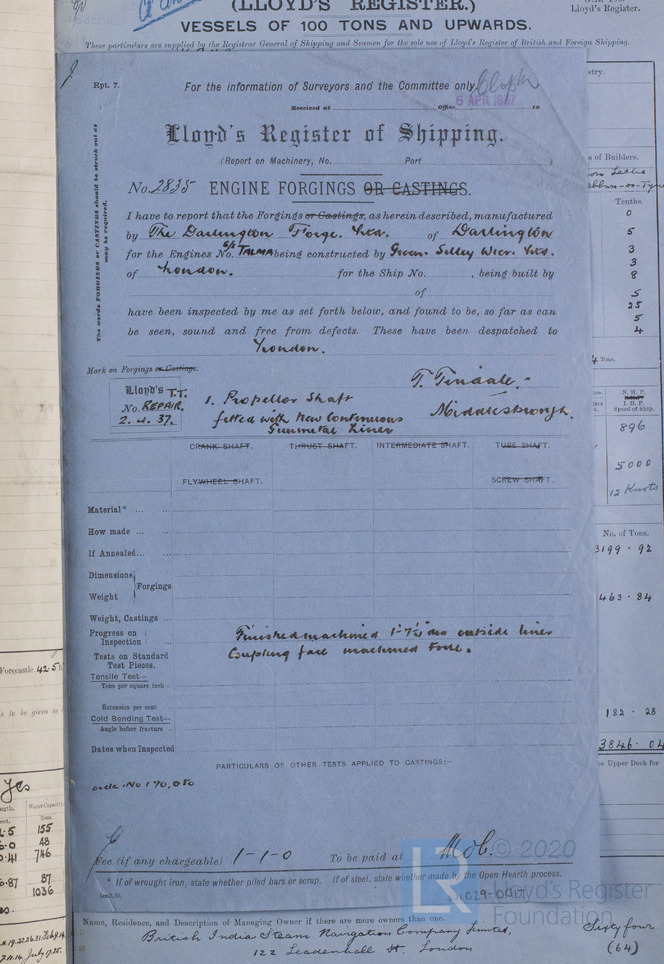 (LLOYD'S REGISTER.)
Lloyd's Register.
VESSELS OF 100 TONS AND UPWARDS.
These particulars are supplied by the Registrar General of Shipping and Seamen for the sole use of Lloyd's Register of British and Foreign Shipping.
Rpt. 7.
For the information of Surveyors and the Committee only.
Received at Office 6 APR 1937 19
Lloyd's Register of Shipping.
(Report on Machinery, No. Port )
No. 2835 ENGINE FORGINGS OR CASTINGS.
The words FORGINGS or CASTINGS should be struck out as may be required.
I have to report that the Forgings or Castings, as herein described, manufactured
by The Darlington Forge. Ltd. of Darlington
for the Engines No. S/S TALMA being constructed by Green. Silley Weir. Ltd.
of London. for the Ship No. , being built by
of
have been inspected by me as set forth below, and found to be, so far as can
be seen, sound and free from defects. These have been despatched to
London.
Mark on Forgings or Castings.
T. Tindale.
Middlesbrough.
Lloyd's T.T.
No. REPAIR.
2. 4. 37.
1. Propellor Shaft
fitted with New Continuous
Gunmetal Liner
CRANK SHAFT. THRUST SHAFT. INTERMEDIATE SHAFT. TUBE SHAFT.
FLYWHEEL SHAFT. SCREW SHAFT.
Material* ... ...
How made ... ...
If Annealed... ...
Dimensions
Forgings
Weight
Weight, Castings ...
Progress on Inspection
Finished machined 1'-7¼" dia outside liner
Coupling face machined Fore.
Tests on Standard
Test Pieces.
Tensile Test—
Tons per square inch
Extension per cent
Cold Bending Test—
Angle before fracture
Dates when Inspected
PARTICULARS OF OTHER TESTS APPLIED TO CASTINGS:—
order No 170,080
Fee (if any chargeable) 1-1-0 To be paid at Mob.
* If of wrought iron, state whether piled bars or scrap. If of steel, state whether made by the Open Hearth process.
© 2020
Lloyd's Register
Foundation
Name, Residence, and Description of Managing Owner if there are more owners than one.
British India Steam Navigation Company Limited.
122 Leadenhall St. London
Sixty four
(64)
s of Builders.
Tenths.
0
5
3
3
8
5
25
5
4
N. H. P.
I. H. P.
Speed of Ship.
896
5000
12 Knots
No. of Tons.
3199 . 92
463 . 84
182 . 28
3846 . 04
Upper Deck for
Forecastle 42.5
Yes
Water Capacity
Tons
155
48
746
87
1036